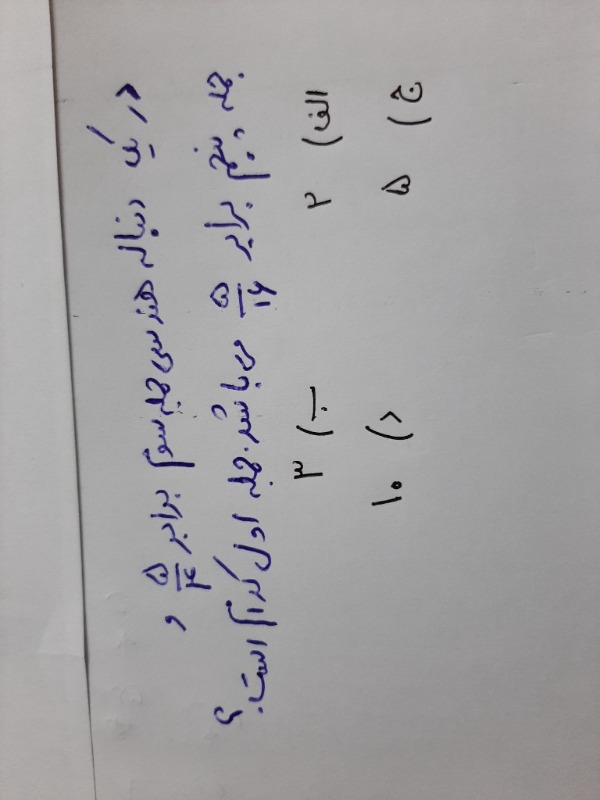 در یک دنباله هندسی جمله سوم برابر ۵/۴ و
جمله پنجم برابر ۵/۱۶ می باشد. جمله اول کدام است؟
الف) ۲ ب) ۳
ج) ۵ د) ۱۰